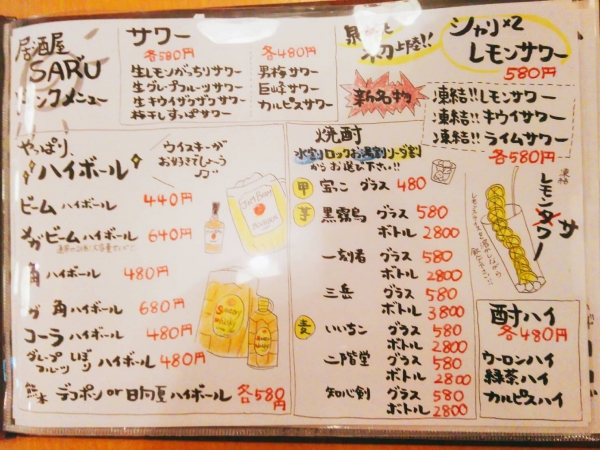 居酒屋
SARU
ドリンクメニュー
サワー
各580円
生レモンがっちりサワー
生グレープフルーツサワー
生キウイザクザクサワー
梅干しすっぱサワー
各480円
男梅サワー
巨峰サワー
カルピスサワー
初上陸!!
シャリ×2
レモンサワー
580円
新名物
凍結!!レモンサワー
凍結!!キウイサワー
凍結!!ライムサワー
各580円
やっぱり、
ハイボール
ウイスキーが
お好きでしょう
ビームハイボール 440円
メガビームハイボール 640円
角ハイボール 480円
メガ角ハイボール 680円
コーラハイボール 480円
グレープフルーツしぼりハイボール 480円
熊本 デコポンor日向夏ハイボール 各580円
焼酎
水割りロックお湯割りソーダ割
からお選び下さい!!
甲 宝っこ グラス 480
芋 黒霧島 グラス 580
ボトル 2800
一刻者 グラス 580
ボトル 2800
三岳 グラス 580
ボトル 3800
麦 いいちこ グラス 580
ボトル 2800
二階堂 グラス 580
ボトル 2800
知心剣 グラス 580
ボトル 2800
凍結
レモンサワー
酎ハイ
各480円
ウーロンハイ
緑茶ハイ
カルピスハイ